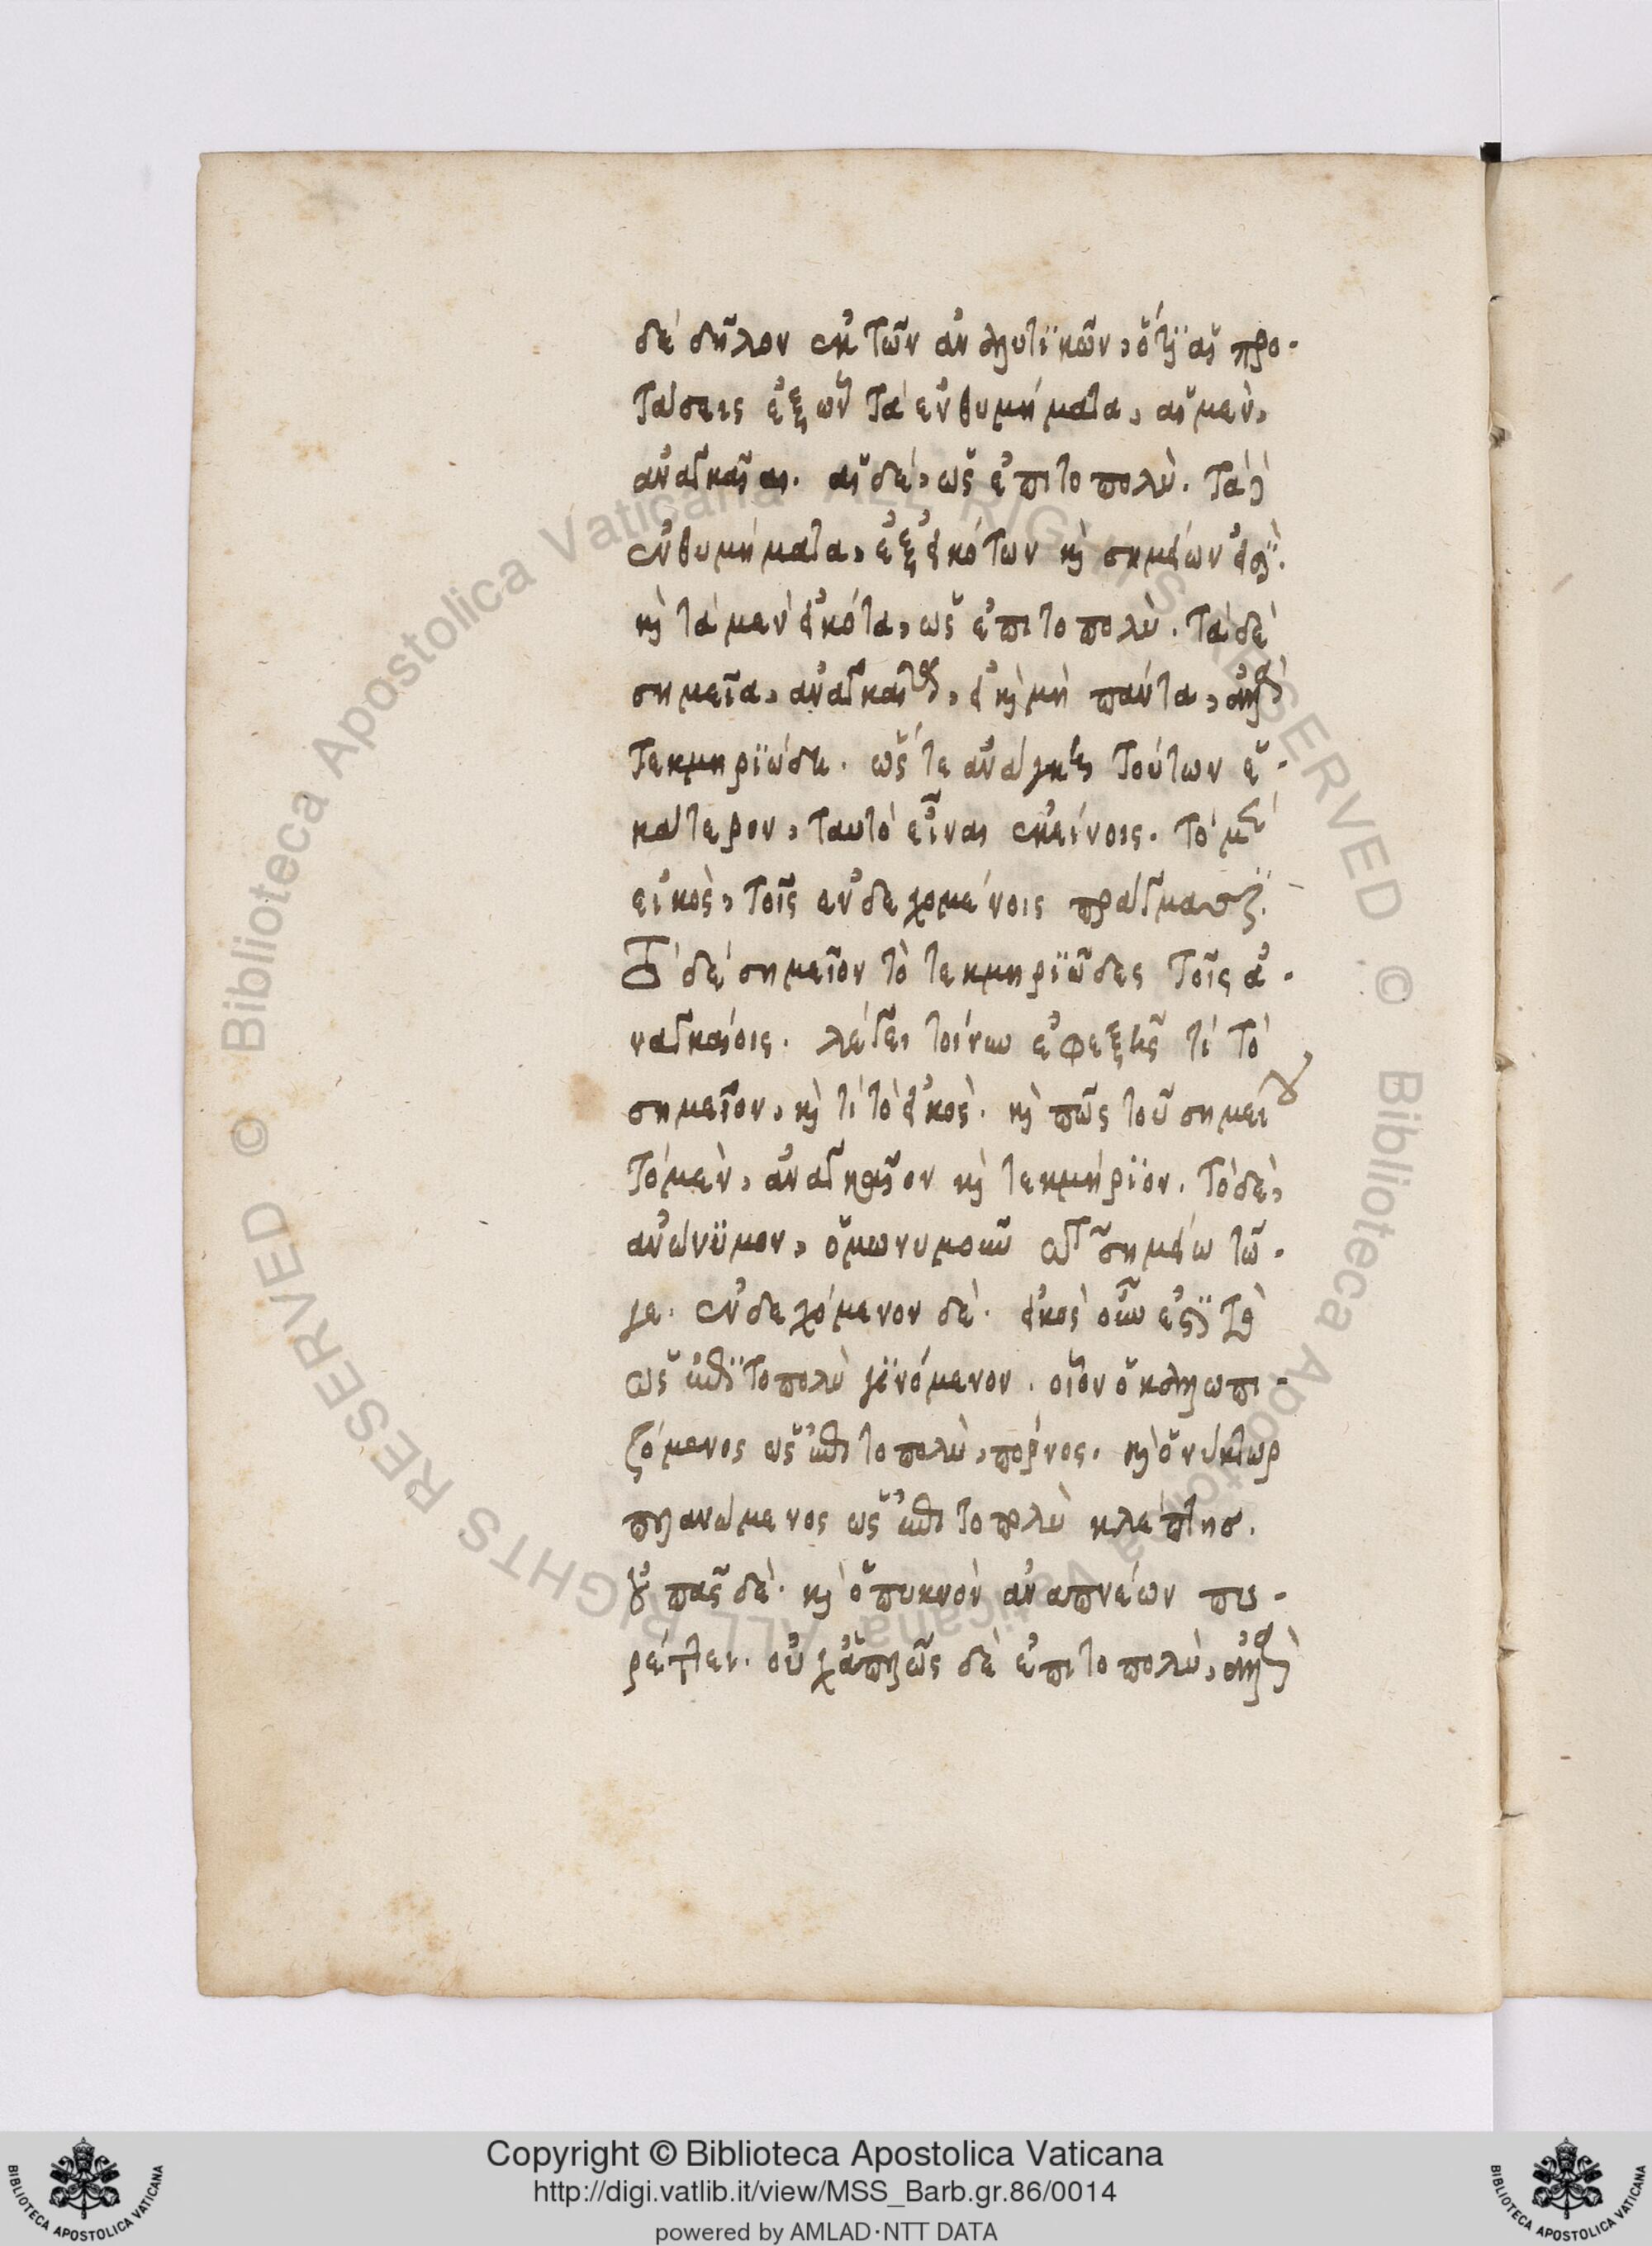 δὲ δῆλον ἐκ τῶν ἀναλυτικῶν, ὅτι αἱ προ-
τάσεις ἐξ ὧν τὰ ἐνθυμήματα, αἱ μὲν,
ἀναγκαῖαι. αἱ δὲ, ὡς ἐπιτοπολύ. τὰ δὲ
ἐνθυμήματα, ἐξ εἰκότων καὶ σημείων εἰσί.
καὶ τὰ μὲν εἰκότα, ὡς ἐπιτοπολύ. τὰ δὲ
σημεῖα, ἀναγκαῖα, εἰ καὶ μὴ πάντα, ἀλλὰ
τεκμηριώδη. ὥς τε ἀνάγκη τούτων ἑ-
κάτερον, ταυτὸ εἶναι ἐκείνοις. τὸ μὲν
εἰκὸς, τοῖς ἐνδεχομένοις πράγμασι.
Τὸ δὲ σημεῖον τὸ τεκμηριῶδες τοῖς ἀ-
ναγκαίοις. λέγει τοίνυν ἐφεξῆς τί τὸ
σημεῖον, καὶ τί τὸ εἰκός. καὶ πῶς τοῦ σημείου
τὸ μὲν, ἀναγκαῖον καὶ τεκμήριον. τὸ δὲ,
ἀνώνυμον, ὁμωνυμοῦν σημείω τῶ
γε. ἐνδεχόμενον δέ. εἰκὸς οὖν ἐστὶ τὸ
ὡς ἐπιτοπολὺ γινόμενον. οἷον ὁ καλλωπι-
ζόμενος ὡς ἐπιτοπολὺ, πόρνος. καὶ ὁ νύκτωρ
πλανώμενος ὡς ἐπιτοπολὺ κλέπτης.
οὐ πᾶς δέ. καὶ ὁ πυκνὸν ἀναπνέων πυ-
ρέττει. οὐχ ἁπλῶς δὲ ἐπιτοπολὺ, ἀλλὰ
Copyright © Biblioteca Apostolica Vaticana
http://digi.vatlib.it/view/MSS_Barb.gr.86/0014
powered by AMLAD·NTT DATA